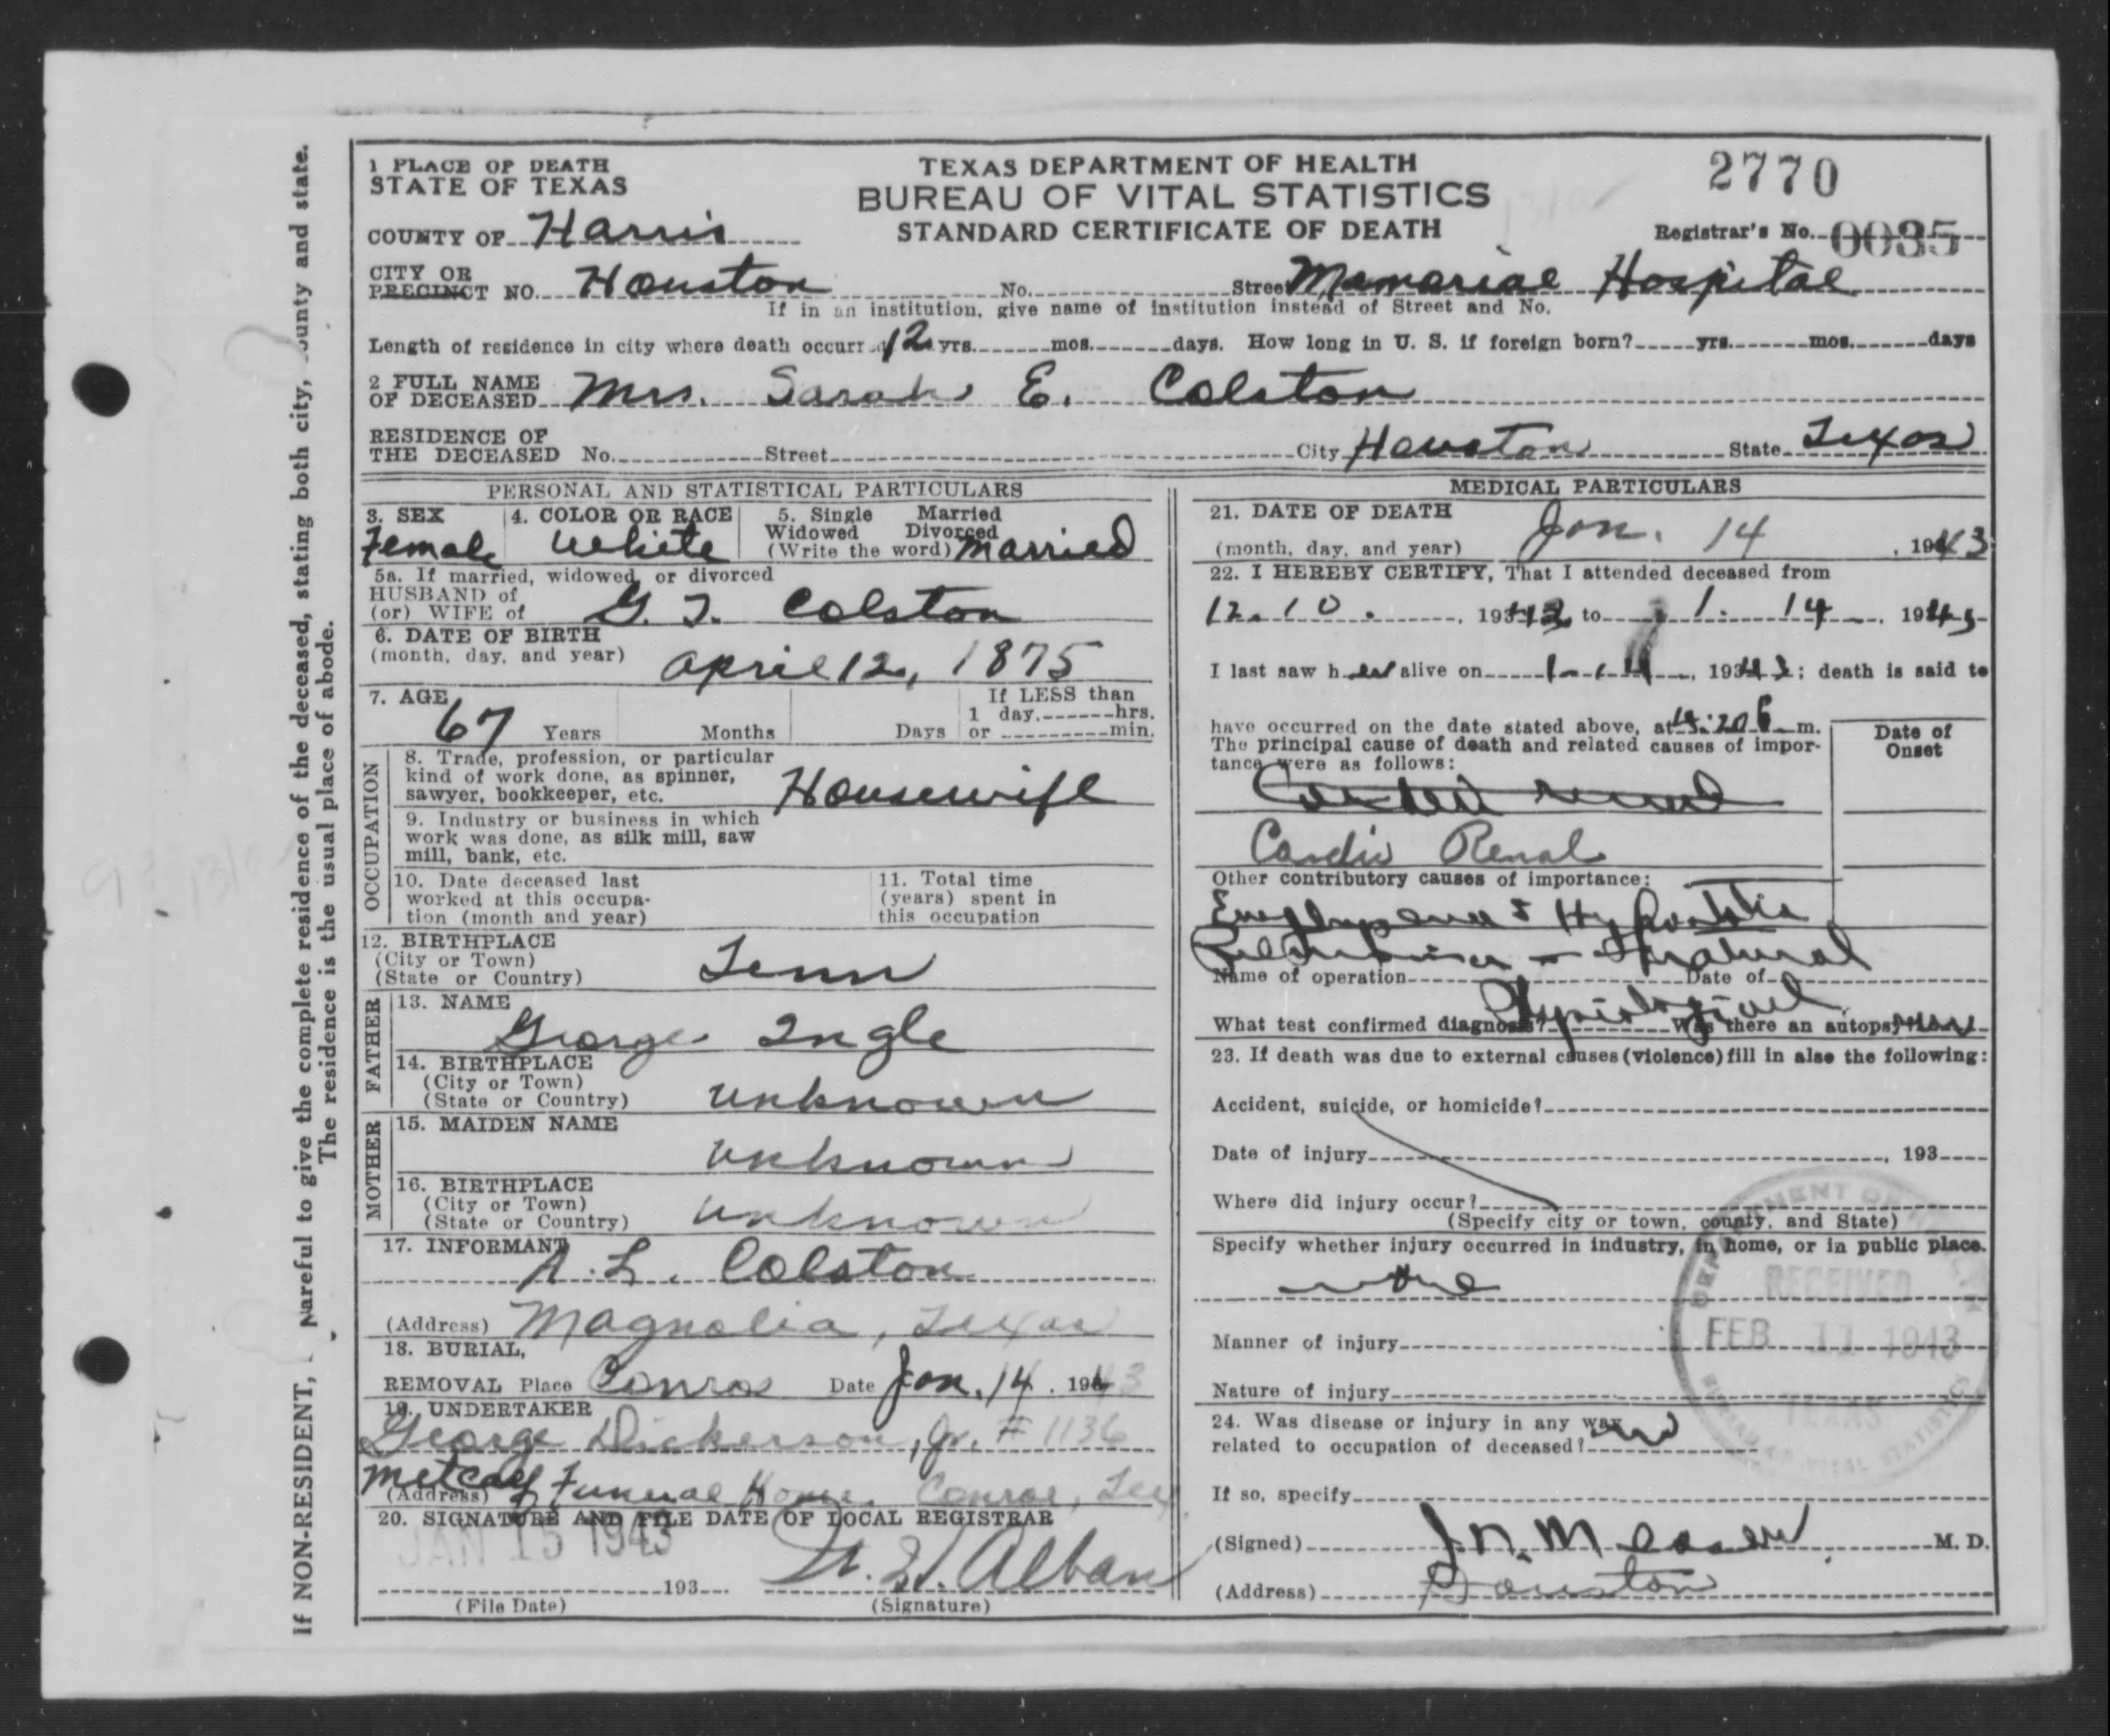 1 PLACE OF DEATH
STATE OF TEXAS
TEXAS DEPARTMENT OF HEALTH
BUREAU OF VITAL STATISTICS
STANDARD CERTIFICATE OF DEATH
2770
COUNTY OF Harris
Registrar's No. 0035
CITY OR
PRECINCT NO. Houston No. Street Memorial Hospital
If in an institution, give name of institution instead of Street and No.
Length of residence in city where death occurred 12 yrs. mos. days. How long in U. S. if foreign born? yrs. mos. days
2 FULL NAME
OF DECEASED Mrs. Sarah E. Colston
RESIDENCE OF
THE DECEASED No. Street City Houston State Texas
PERSONAL AND STATISTICAL PARTICULARS
3. SEX Female
4. COLOR OR RACE White
5. Single Married
Widowed Divorced
(Write the word) Married
5a. If married, widowed, or divorced
HUSBAND of
(or) WIFE of G. T. Colston
6. DATE OF BIRTH
(month, day, and year) April 12, 1875
7. AGE
67 Years Months Days
If LESS than
1 day, hrs.
or min.
OCCUPATION
8. Trade, profession, or particular
kind of work done, as spinner,
sawyer, bookkeeper, etc. Housewife
9. Industry or business in which
work was done, as silk mill, saw
mill, bank, etc.
10. Date deceased last
worked at this occupa-
tion (month and year)
11. Total time
(years) spent in
this occupation
12. BIRTHPLACE
(City or Town)
(State or Country) Tenn
FATHER
13. NAME
George Ingle
14. BIRTHPLACE
(City or Town)
(State or Country) unknown
MOTHER
15. MAIDEN NAME
unknown
16. BIRTHPLACE
(City or Town)
(State or Country) unknown
17. INFORMANT
A. L. Colston
(Address) Magnolia, Texas
18. BURIAL,
REMOVAL Place Conroe Date Jan. 14, 1943
19. UNDERTAKER
George Dickerson, Jr. # 1136
Metcalf Funeral Home. Conroe, Tex
(Address)
20. SIGNATURE AND FILE DATE OF LOCAL REGISTRAR
JAN 15 1943
193 Alban
(File Date) (Signature)
MEDICAL PARTICULARS
21. DATE OF DEATH
(month, day, and year) Jan. 14, 1943
22. I HEREBY CERTIFY, That I attended deceased from
12.10., 1942 to 1. 14, 1943
I last saw her alive on 1-14, 1943; death is said to
have occurred on the date stated above, at m.
The principal cause of death and related causes of impor-
tance were as follows:
Date of
Onset
Cardio Renal
Other contributory causes of importance:
natural
Name of operation Date of
What test confirmed diagnosis? Was there an autopsy
23. If death was due to external causes (violence) fill in also the following:
Accident, suicide, or homicide?
Date of injury , 193
Where did injury occur?
(Specify city or town, county, and State)
Specify whether injury occurred in industry, in home, or in public place.
Manner of injury
Nature of injury
24. Was disease or injury in any way
related to occupation of deceased? no
If so, specify
(Signed) M. D.
(Address) Houston
DEPARTMENT OF HEALTH
RECEIVED
FEB 11 1943
TEXAS
BUREAU OF VITAL STATISTICS
If NON-RESIDENT, careful to give the complete residence of the deceased, stating both city, county and state.
The residence is the usual place of abode.